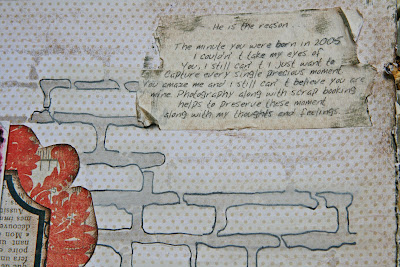 He is the reason
The minute you were born in 2005
I couldn't take my eyes of
You, I still can't I just want to
Capture every single precious moment
You amaze me and I still can't believe you are
mine. Photography along with scrap booking
helps to preserve these moment
along with, my thoughts and feelings